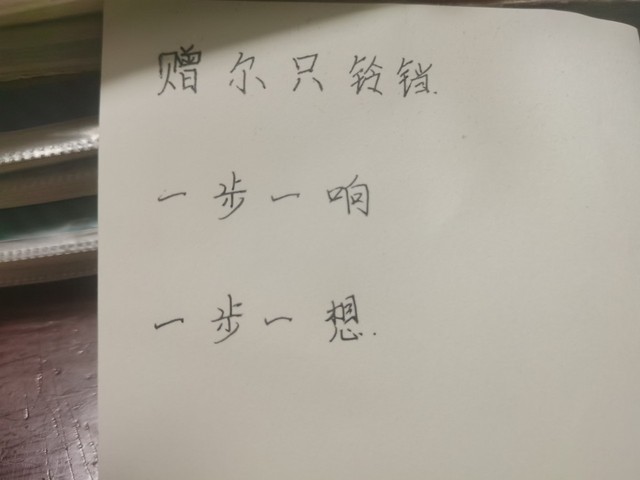 赠尔只铃铛.
一步一响
一步一想.